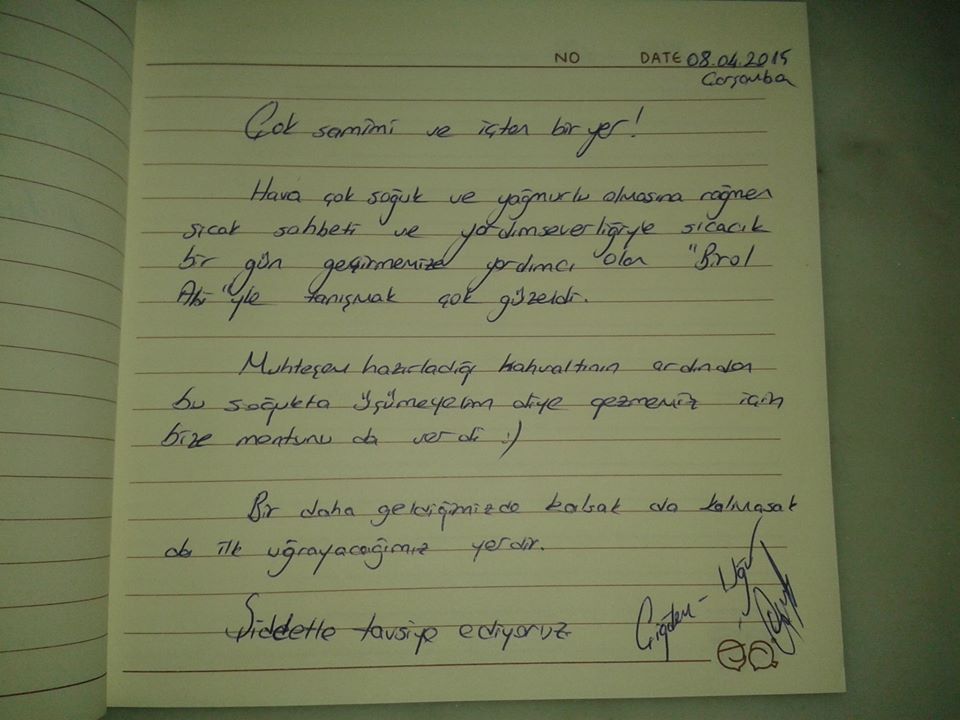 NO DATE 08.04.2015
Çarşamba
Çok samimi ve içten bir yer!
Hava çok soğuk ve yağmurlu olmasına rağmen
sıcak sohbeti ve yardımseverliğiyle sıcacık
bir gün geçirmemize yardımcı olan "Birol
Abi"yle tanışmak çok güzeldi.
Muhteşem hazırladığı kahvaltının ardından
bu soğukta üşümeyelim diye gezmemiz için
bize montunu da verdi :)
Bir daha geldiğimizde kalsak da kalmasak
da ilk uğrayacağımız yerdir.
Şiddetle tavsiye ediyoruz.
Çiğdem - Uğur